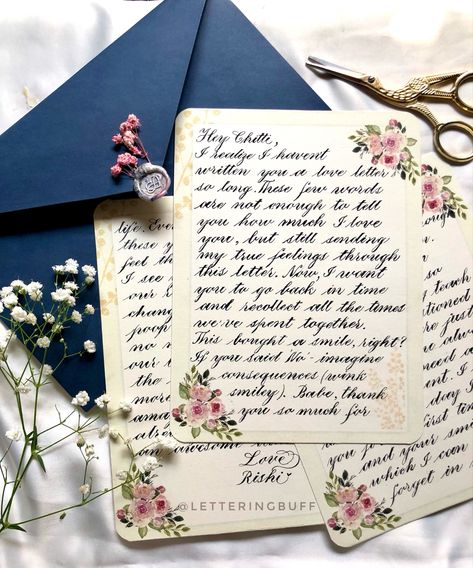 Hey Chitti,
I realize I havent
written you a love letter
so long. These few words
are not enough to tell
you how much I love
you, but still sending
my true feelings through
this letter. Now, I want
you to go back in time
and recollect all the times
we've spent together.
This bought a smile, right?
If you Said 'No'- imagine
consequences (wink
smiley). Babe, thank
you so much for
life.
these
feel
I see
our
no
our
the
more
an awesome
Love
Rishi
so
teach
just
advice
need
I
day
first
you
and your
which I can
forget in
@LETTERINGBUFF